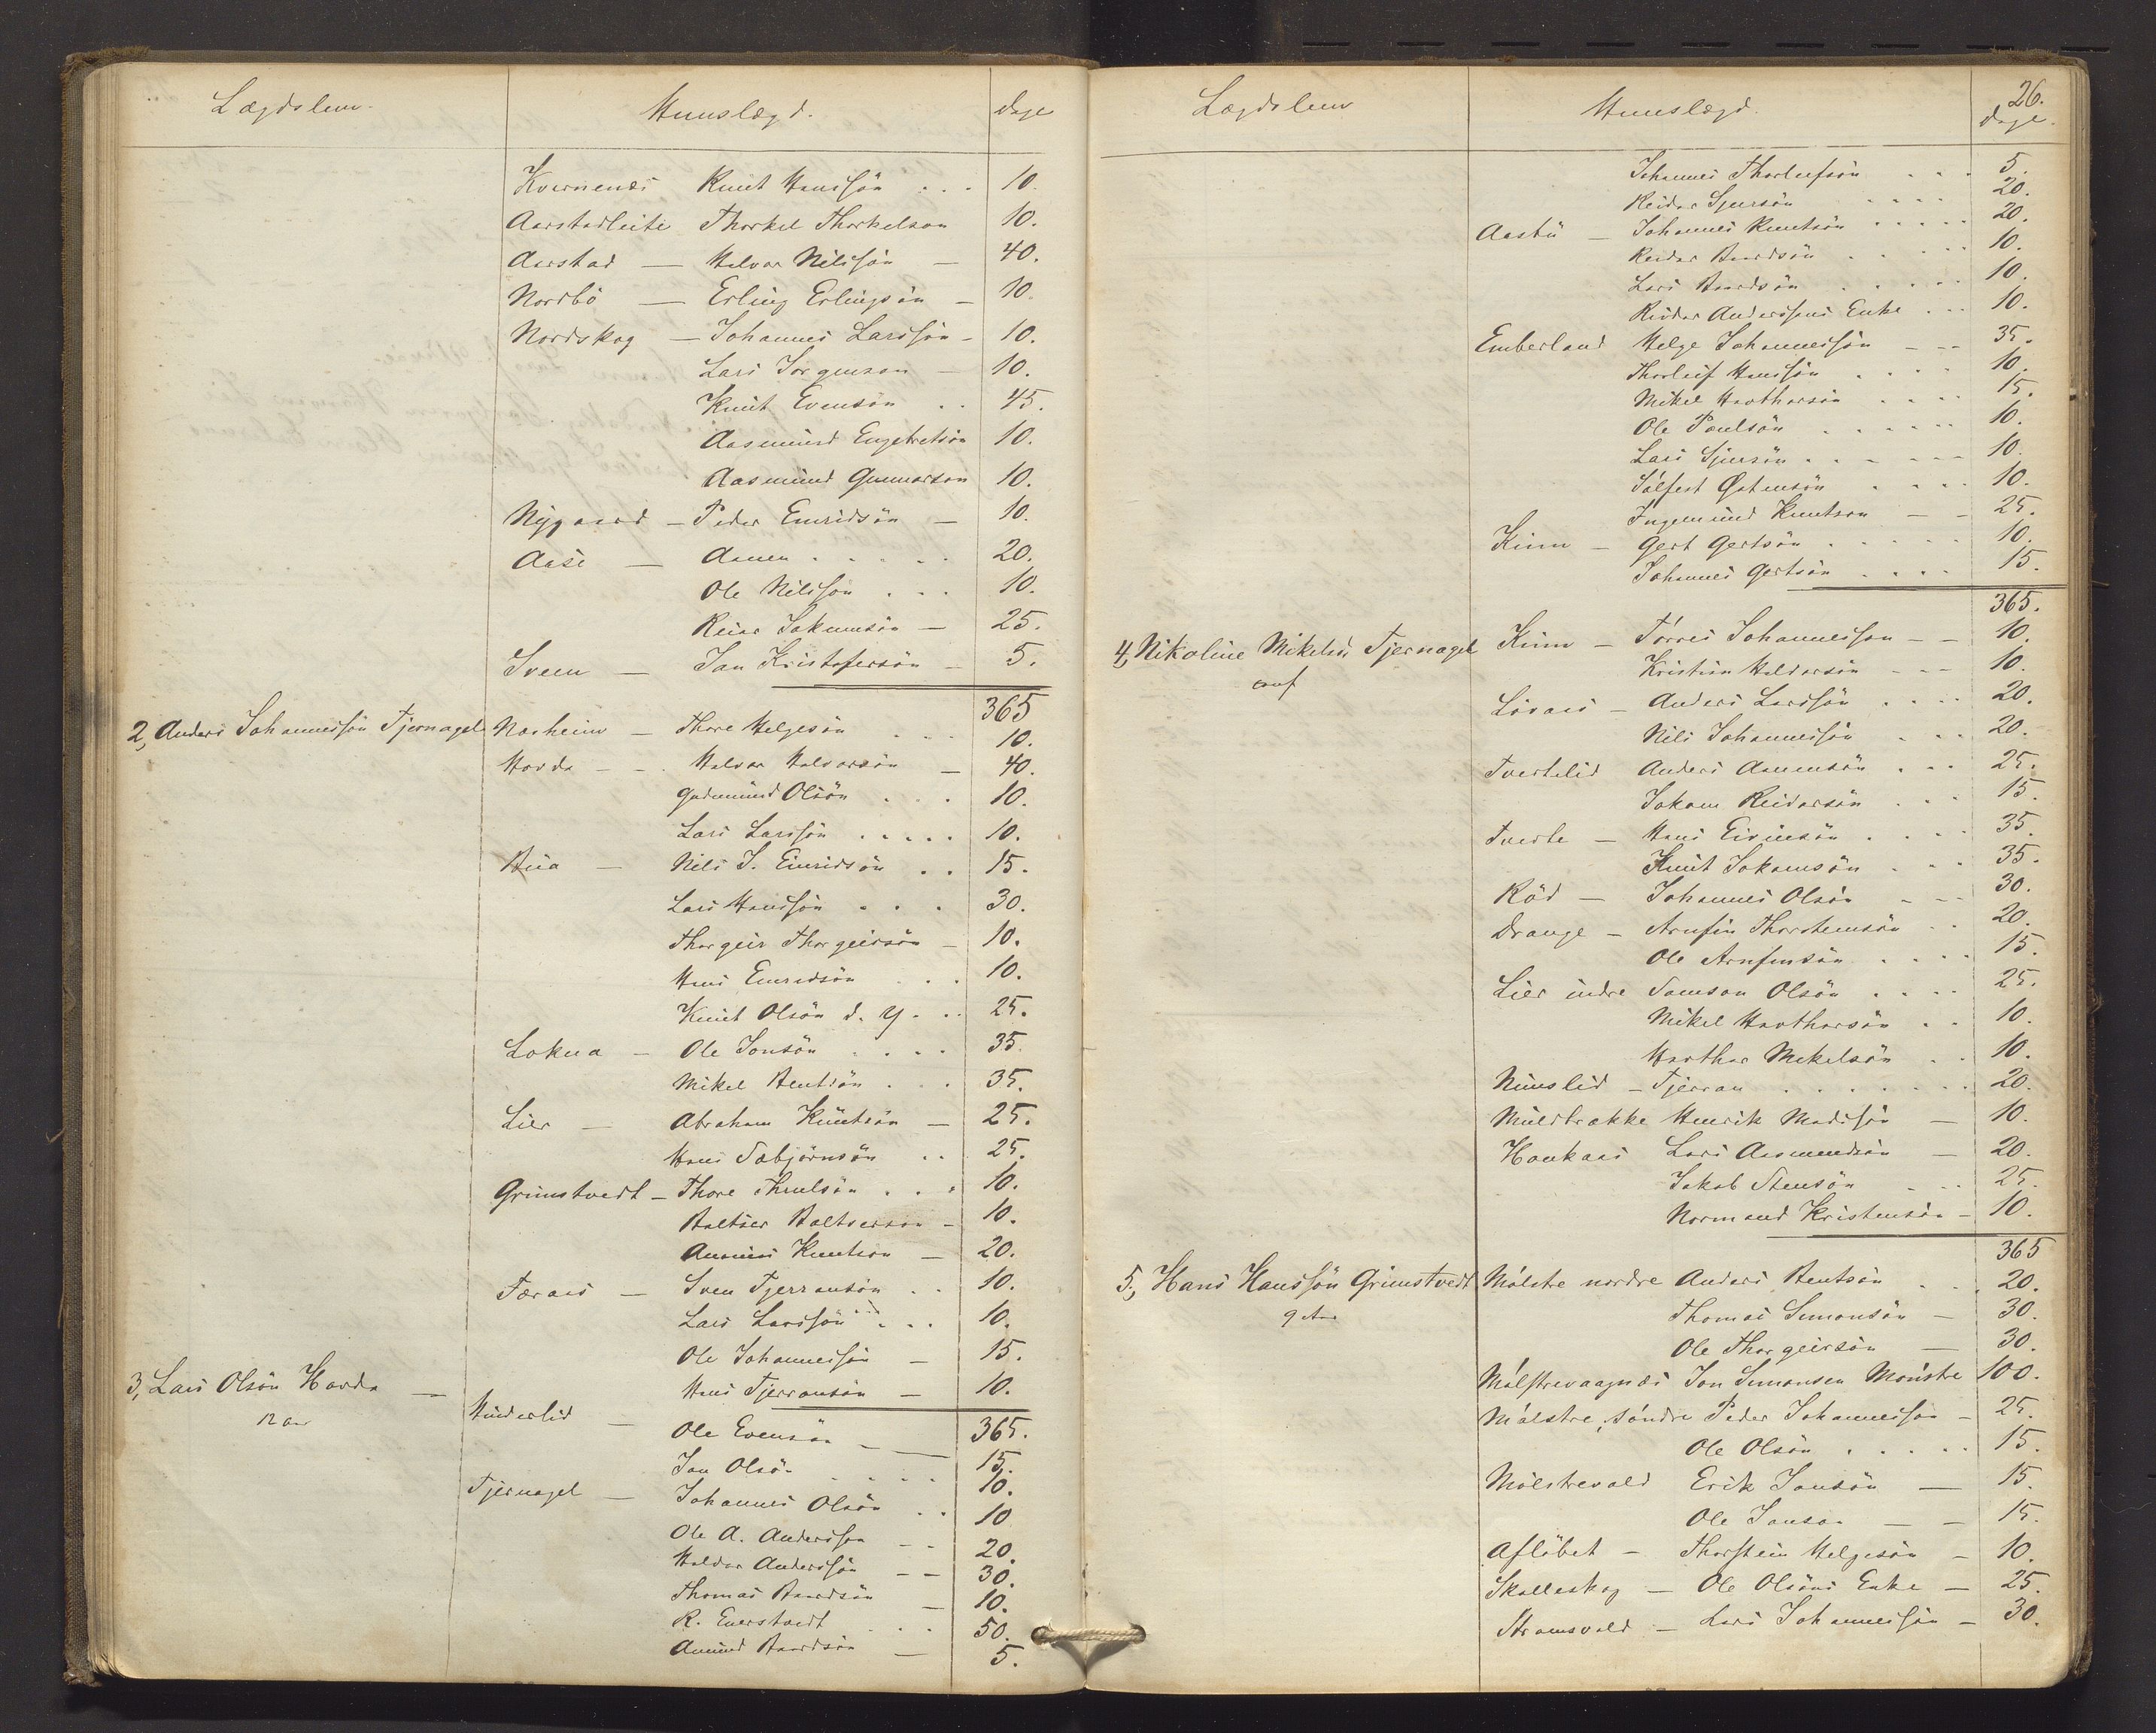 Lægdslem. Huuslægd. Dage
Kvernenæs Knut Hanssön . . . 10.
Aarstadleite Thorkel Thorkelson 10.
Aarstad — Halvor Nilssön — 40.
Nordbö — Erling Erlingsön — 10.
Nordskog — Johannes Larssön — 10.
Lars Jörgenson — 10.
Knut Evensön . . 45.
Aasmund Engebretsön 10.
Aasmund Gunnarson 10.
Nygaard — Peder Enridsön — 10.
Aase — Aamen . . . . . 20.
Ole Nilssön . . . 10.
Reiar Jakumsön — 25.
Sveen — Jan Kristofersön — 5.
365
2, Anders Johannessön Tjernagel Næsheim — Thore Helgesön . . . 10.
Hovda — Halvor Halvorsön — 40.
Gudmund Olsön . . . 10.
Lars Larssön . . . . . 10.
Bua — Nils J. Enridsön . . 15.
Lars Hanssön . . . 30.
Thorgeir Thorgeirsön — 10.
Hans Enridsön . . . 10.
Knut Olsön d. y. . . 25.
Lokna — Ole Jonsön . . . . 35.
Mikel Bentsön . . . 35.
Lier — Abraham Knutsön — 25.
Hans Sæbjörnsön . . 25.
Grimstvedt — Thore Thruelsön . . . 10.
Baltser Baltserson — 10.
Knutson — 20.
Færaas — Sven Tjerransön . . 10.
Lars Larssön . . . 10.
Ole Johannessön — 15.
Hans Tjerransön — 10.
365.
3, Lars Olsön Hovda — Hinderlid — Ole Evensön — 15.
12 Aar
Jan Olsön . . . . 10.
Tjernagel — Johannes Olsön . . 10
Ole A. Anderssen — 20.
Haldor Anderssön — 30.
Thomas Baardsön — 10.
R. Everstvedt . . . 50.
Amund Baardsön — 5.
26.
Lægdslem Huuslægd. Dage.
Johannes Thorleifsön . . . 5.
Reidar Sjursön . . . . 20.
Aasbu — Johannes Knutsön . . . . . 20.
Reidar Baardsön . . . . . 10.
Lars Baardsön . . . . . 10.
Reidar Anderssens Enke . . . 10.
Emberland Helge Johannessön — 35.
Thorleif Hanssön . . . . 10.
Mikel Havthorsön . . . . 15.
Ole Poulsön . . . . . . 10.
Lars Sjursön . . . . . . 10.
Sölfest Östensön . . . . 10.
Ingemund Knutson — 25.
Kinn — Gert Gertsön . . . . . 10.
Johannes Gertsön . . . . 15.
365.
4, Nikoline Mikelsd. Tjernagel Kinn — Törres Johannesson — 10.
Kristian Haldorsön — 10.
Lövaas — Anders Larssön . . . . 20.
Nils Johannessön . . . 20.
Tveitelid Anders Aamundsön . . . 25.
Jokum Reidarsön . . . 15.
Tveite — Hans Eivinsön . . . . 35.
Knut Jokumsön . . . 35.
Röd — Johannes Olsön — 30.
Drange — Arnfin Thorstensön . . 20.
Ole Arnfinsön . . . . 15.
Lier indre Samson Olsön . . . . 25.
Mikel Havthorsön . . 10.
Havthor Mikelsön . . 10.
Nimslid — Tjerran . . . . . . . 20.
Mulstrække Henrik Madssön — 10.
Haukaas Lars Aasmundsön — 20.
Jakob Stensön — 25.
Normand Kristensön — 10.
365
5, Hans Hanssön Grimstvedt Mölstre nordre Anders Bentsön . . . 20.
9 Aar
Thomas Simonsön — 30.
Ole Thorgeirsön — 30.
Mölstrevaagnæs Jon Simonsen Mönstre 100.
Mölstre, söndre Peder Johannesson — 25.
Ole Olsön . . . . . 15.
Mölstrevold Erik Jonsön — 15.
Ole Janson — 15.
Aflöbet — Thorstein Helgesön — 10.
Skolleskog — Ole Olsöns Enke — 25.
Strömsvold — Lars Johannessön — 30.